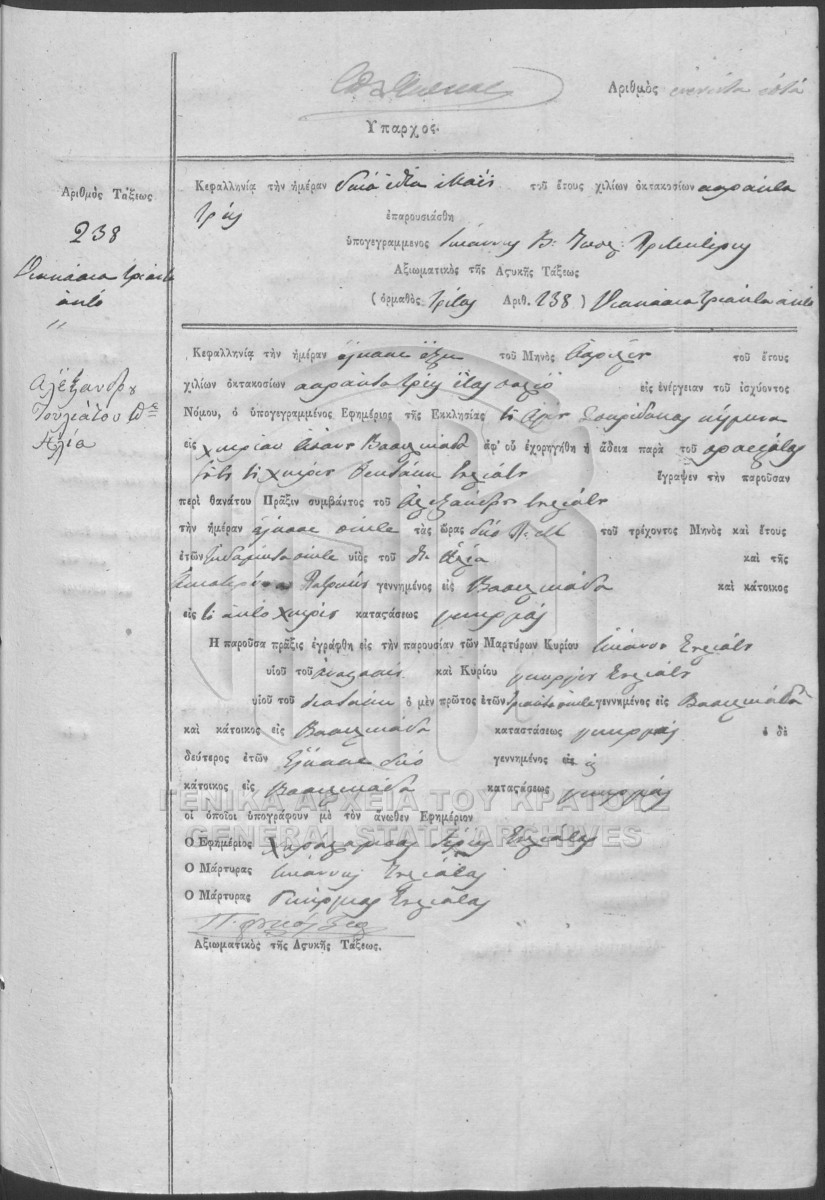 Αριθμὸς ἐνενῆντα ἑπτά
Υπαρχος.
Αριθμὸς Τάξεως
238
Διακόσια τριάντα
ὀκτὼ
"
Αλεξανδρȣ
Τουλιάτου
Ηλία
Κεφαλληνίᾳ τὴν ἡμέραν δέκα Μαΐȣ τοῦ ἔτους χιλίων ὀκτακοσίων σαράντα
τρία
ἐπαρουσιάσθη
ὑπογεγραμμενος Ιωάννης Β:
Αξιωματικὸς τῆς Αςυκῆς Τάξεως
(ὁρμαθὸς τρίτος Αριθ. 238) Διακόσια τριάντα ὀκτὼ
Κεφαλληνίᾳ τὴν ἡμέραν εἴκοσι ἕξη τοῦ Μηνὸς Απριλίȣ τοῦ ἔτους
χιλίων ὀκτακοσίων σαράντα τρία εἰς ἐνέργειαν τοῦ ἰσχύοντος
Νόμου, ὁ ὑπογεγραμμένος Εφημέριος τῆς Εκκλησίας τȣ Αγίȣ Σπυρίδωνος
εἰς χωρίον Βασιλικάδα ἀφ' οὗ ἐχορηγήθη ἡ ἄδεια παρὰ τοῦ προεστῶτος
τȣ χωρίȣ ἔγραψεν τὴν παροῦσαν
περὶ θανάτου Πρᾶξιν συμβάντος τοῦ Αλεξάνδρȣ Τȣλιάτȣ
τὴν ἡμέραν εἴκοσι πέντε τὰς ὥρας δύο Π: Μ τοῦ τρέχοντος Μηνὸς καὶ ἔτους
ἐτῶν ἑβδομήντα πέντε υἱὸς τοῦ Ηλία καὶ τῆς
γεννημένος εἰς Βασιλικάδα καὶ κάτοικος
εἰς τὸ αὐτὸ χωρίον καταςάσεως γεωργός
Η παροῦσα πρᾶξις ἐγράφθη εἰς τὴν παρουσίαν τῶν Μαρτύρων Κυρίου Ιωάννȣ Τȣλιάτȣ
υἱοῦ τοῦ καὶ Κυρίου γεωργίȣ Τȣλιάτȣ
υἱοῦ τοῦ ὁ μὲν πρῶτος ἐτῶν τριάντα πέντε γεννημένος εἰς Βασιλικάδα
καὶ κάτοικος εἰς Βασιλικάδα καταστάσεως γεωργός ὁ δὲ
δεύτερος ἐτῶν εἴκοσι δύο γεννημένος εἰς
κάτοικος εἰς Βασιλικάδα καταςάσεως γεωργός
οἱ ὁποῖοι ὑπογράφουν μὲ τὸν ἄνωθεν Εφημέριον
Ο Εφημέριος Χαράλαμπος Ιερεὺς Τȣλιάτος
Ο Μάρτυρας Ιωάννης Τȣλιάτος
Ο Μάρτυρας Γεώργιος Τȣλιάτος
Αξιωματικὸς τῆς Αςυκῆς Τάξεως.
ΓΕΝΙΚΑ ΑΡΧΕΙΑ ΤΟΥ ΚΡΑΤΟΥΣ
GENERAL STATE ARCHIVES